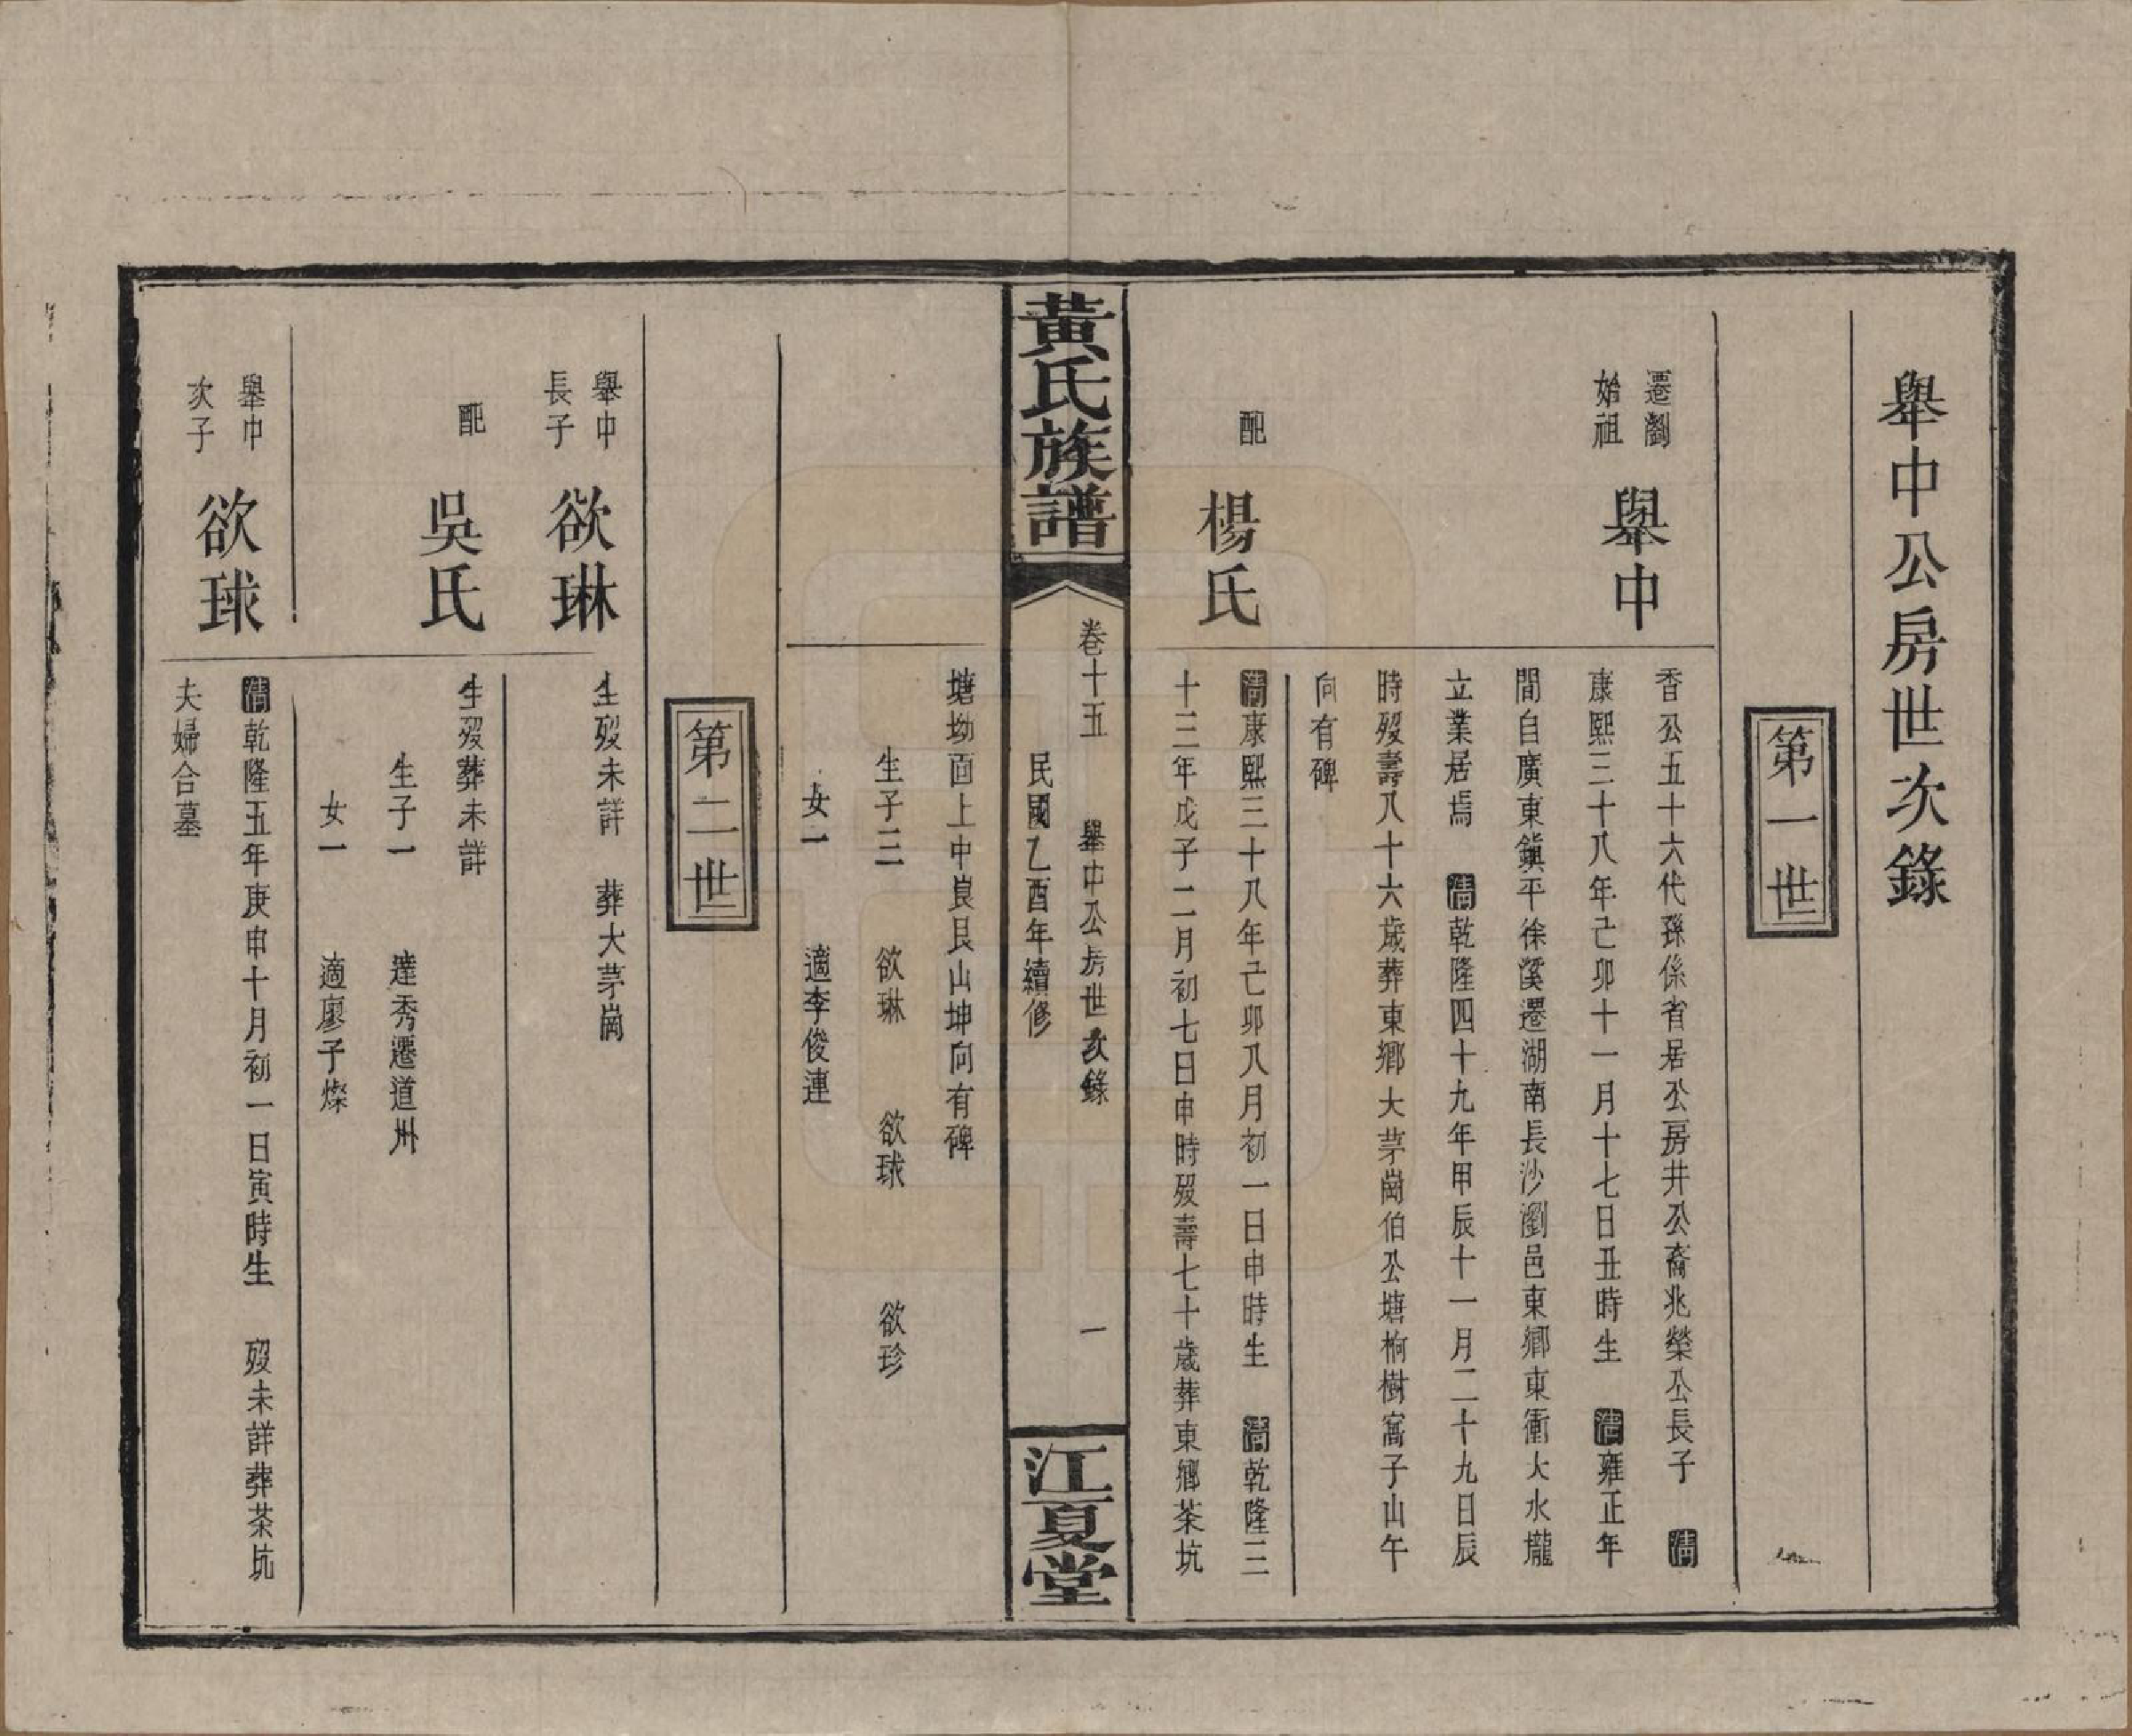 舉中公房世次錄
第一世
遷瀏
始祖
舉中
香公五十六代孫係省居公房井公裔兆榮公長子 清
康熙三十八年己卯十一月十七日丑時生 清雍正年
間自廣東鎮平徐溪遷湖南長沙瀏邑東鄉東衝大水壠
立業居焉 清乾隆四十九年甲辰十一月二十九日辰
時歿壽八十六歲葬東鄉大茅崗伯公塘桐樹窩子山午
向有碑
配
楊氏
清康熙三十八年己卯八月初一日申時生 清乾隆三
十三年戊子二月初七日申時歿壽七十歲葬東鄉茶坑
黃氏族譜
卷十五 舉中公房世次錄 一
民國乙酉年續修
江夏堂
塘坳面上中艮山坤向有碑
生子三 欲琳 欲球 欲珍
女一 適李俊連
第二世
舉中
長子
欲琳
生歿未詳 葬大茅崗
配
吳氏
生歿葬未詳
生子一 達秀遷道州
女一 適廖子燦
舉中
次子
欲球
清乾隆五年庚申十月初一日寅時生 歿未詳葬茶坑
夫婦合墓